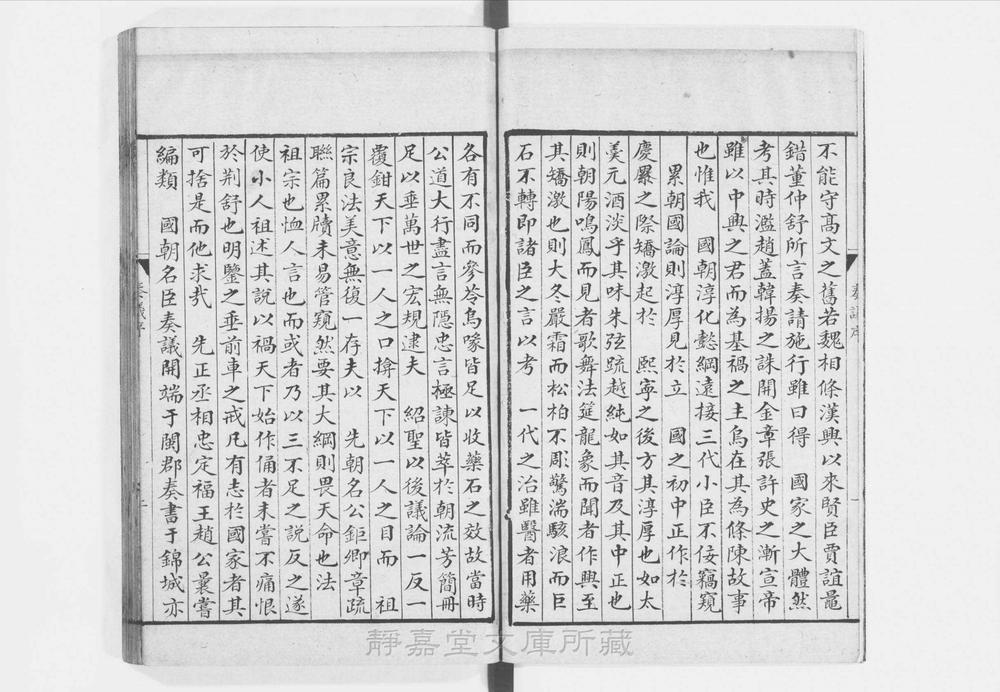 不能守髙文之舊若魏相條漢興以來賢臣賈誼鼂
錯董仲舒所言奏請施行雖曰得　國家之大體然
考其時濫趙蓋韓揚之誅開金章張許史之漸宣帝
雖以中興之君而為基禍之主烏在其為條陳故事
也惟我　國朝淳化懿綱遠接三代小臣不佞竊窺
累朝國論則淳厚見於立　國之初中正作於
慶曆之際矯激起於　熙寧之後方其淳厚也如太
羹元酒淡乎其味朱弦疏越純如其音及其中正也
則朝陽鳴鳳而見者歌舞法筵龍象而聞者作興至
其矯激也則大冬嚴霜而松柏不彫驚湍駭浪而巨
石不轉即諸臣之言以考　一代之治雖醫者用藥
奏議序
各有不同而參苓烏喙皆足以收藥石之效故當時
公道大行盡言無隱忠言極諫皆萃於朝流芳簡冊
足以垂萬世之宏規逮夫　紹聖以後議論一反一
覆鉗天下以一人之口揜天下以一人之目而　祖
宗良法美意無復一存夫以　先朝名公鉅卿章疏
聯篇累牘未易管窺然要其大綱則畏天命也法
祖宗也恤人言也而或者乃以三不足之説反之遂
使小人祖述其説以禍天下始作俑者未嘗不痛恨
於荆舒也明鑒之垂前車之戒凡有志於國家者其
可捨是而他求哉　先正丞相忠定福王趙公曩嘗
編類　國朝名臣奏議開端于閩郡奏書于錦城亦
奏議序
靜嘉堂文庫所藏